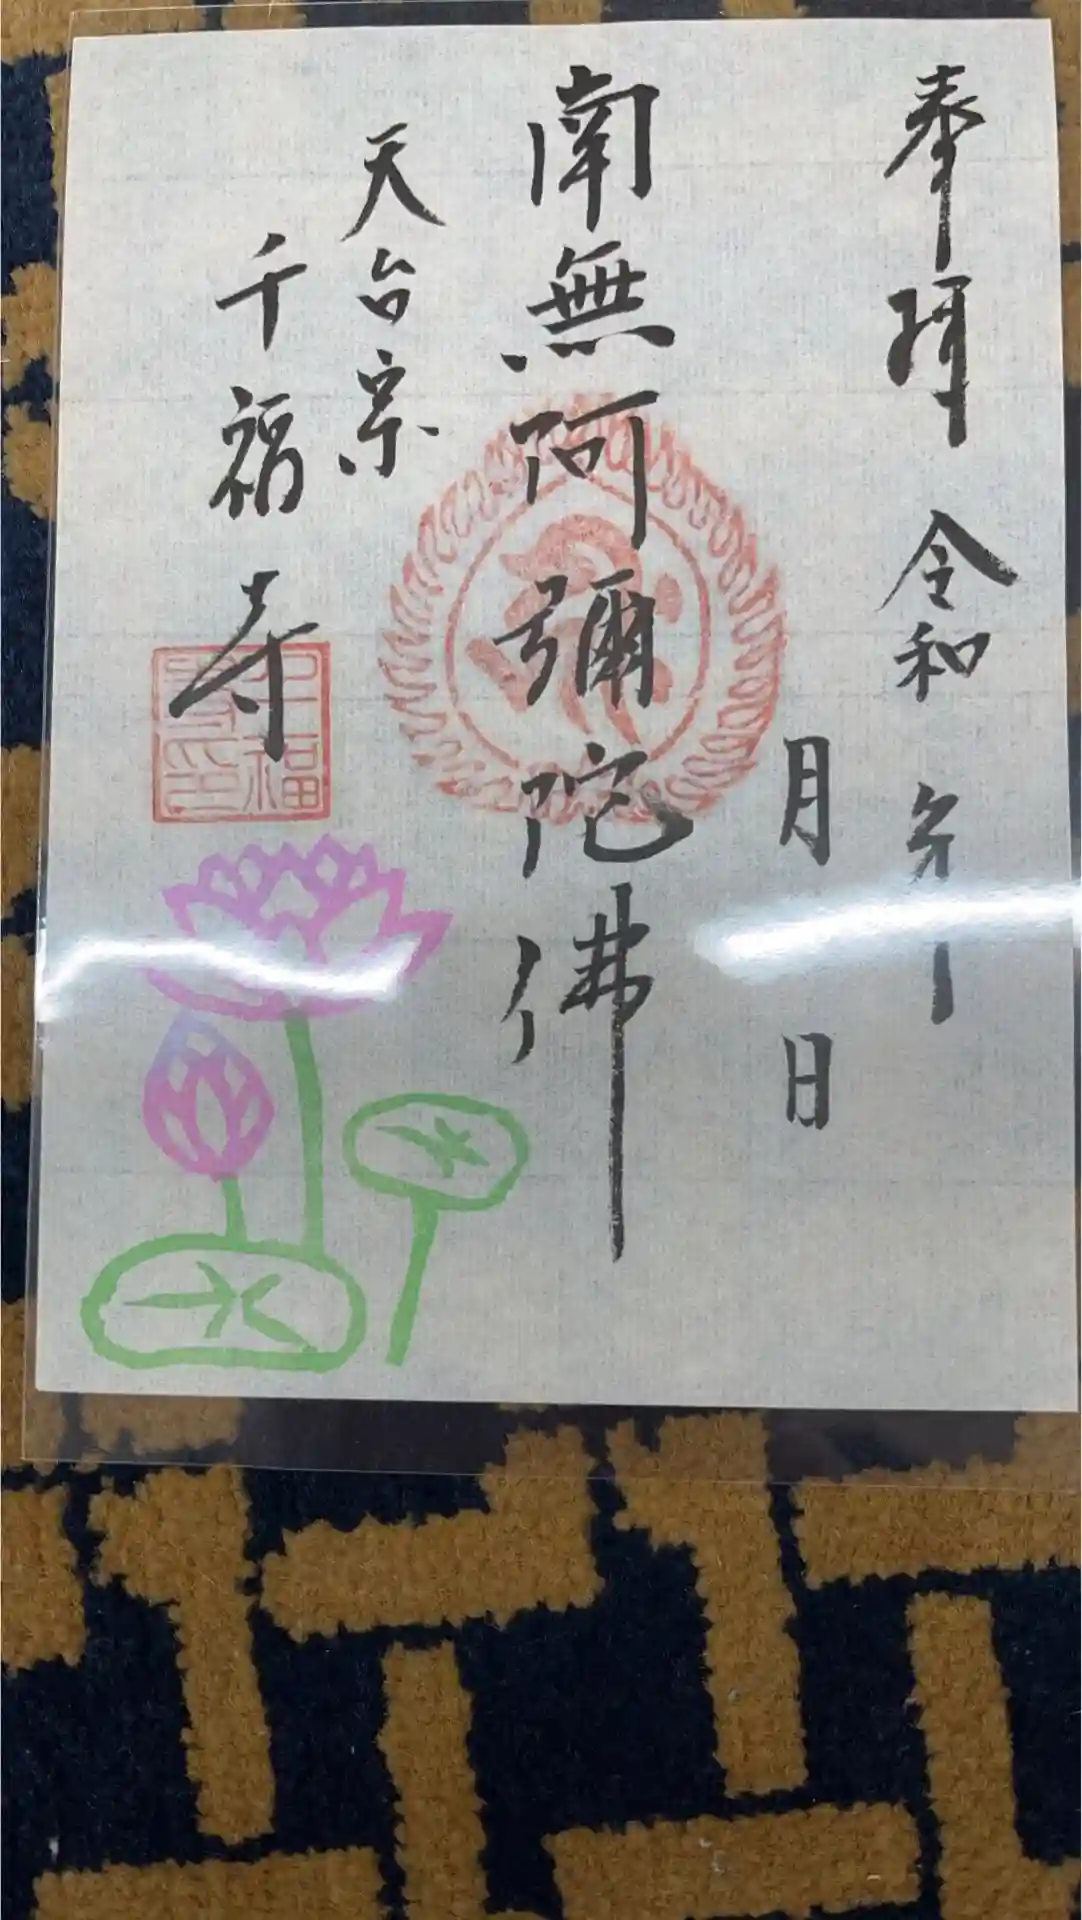 奉拜 令和 年
月 日
南無阿彌陀佛
天台宗
千福寺
千福
寺印